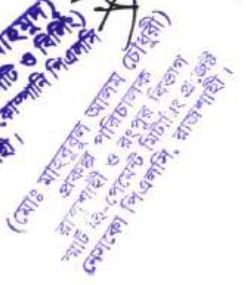 মাহমুদ)
টি ও বিলিং)
কোম্পানি পিএলসি
হী।
(মোঃ মাহবুবুল আলম চৌধুরী)
প্রকল্প পরিচালক
রাজশাহী ও রংপুর বিভাগ
স্মার্ট প্রি-পেমেন্ট মিটারিং প্রকল্প
নেসকো পিএলসি, রাজশাহী।